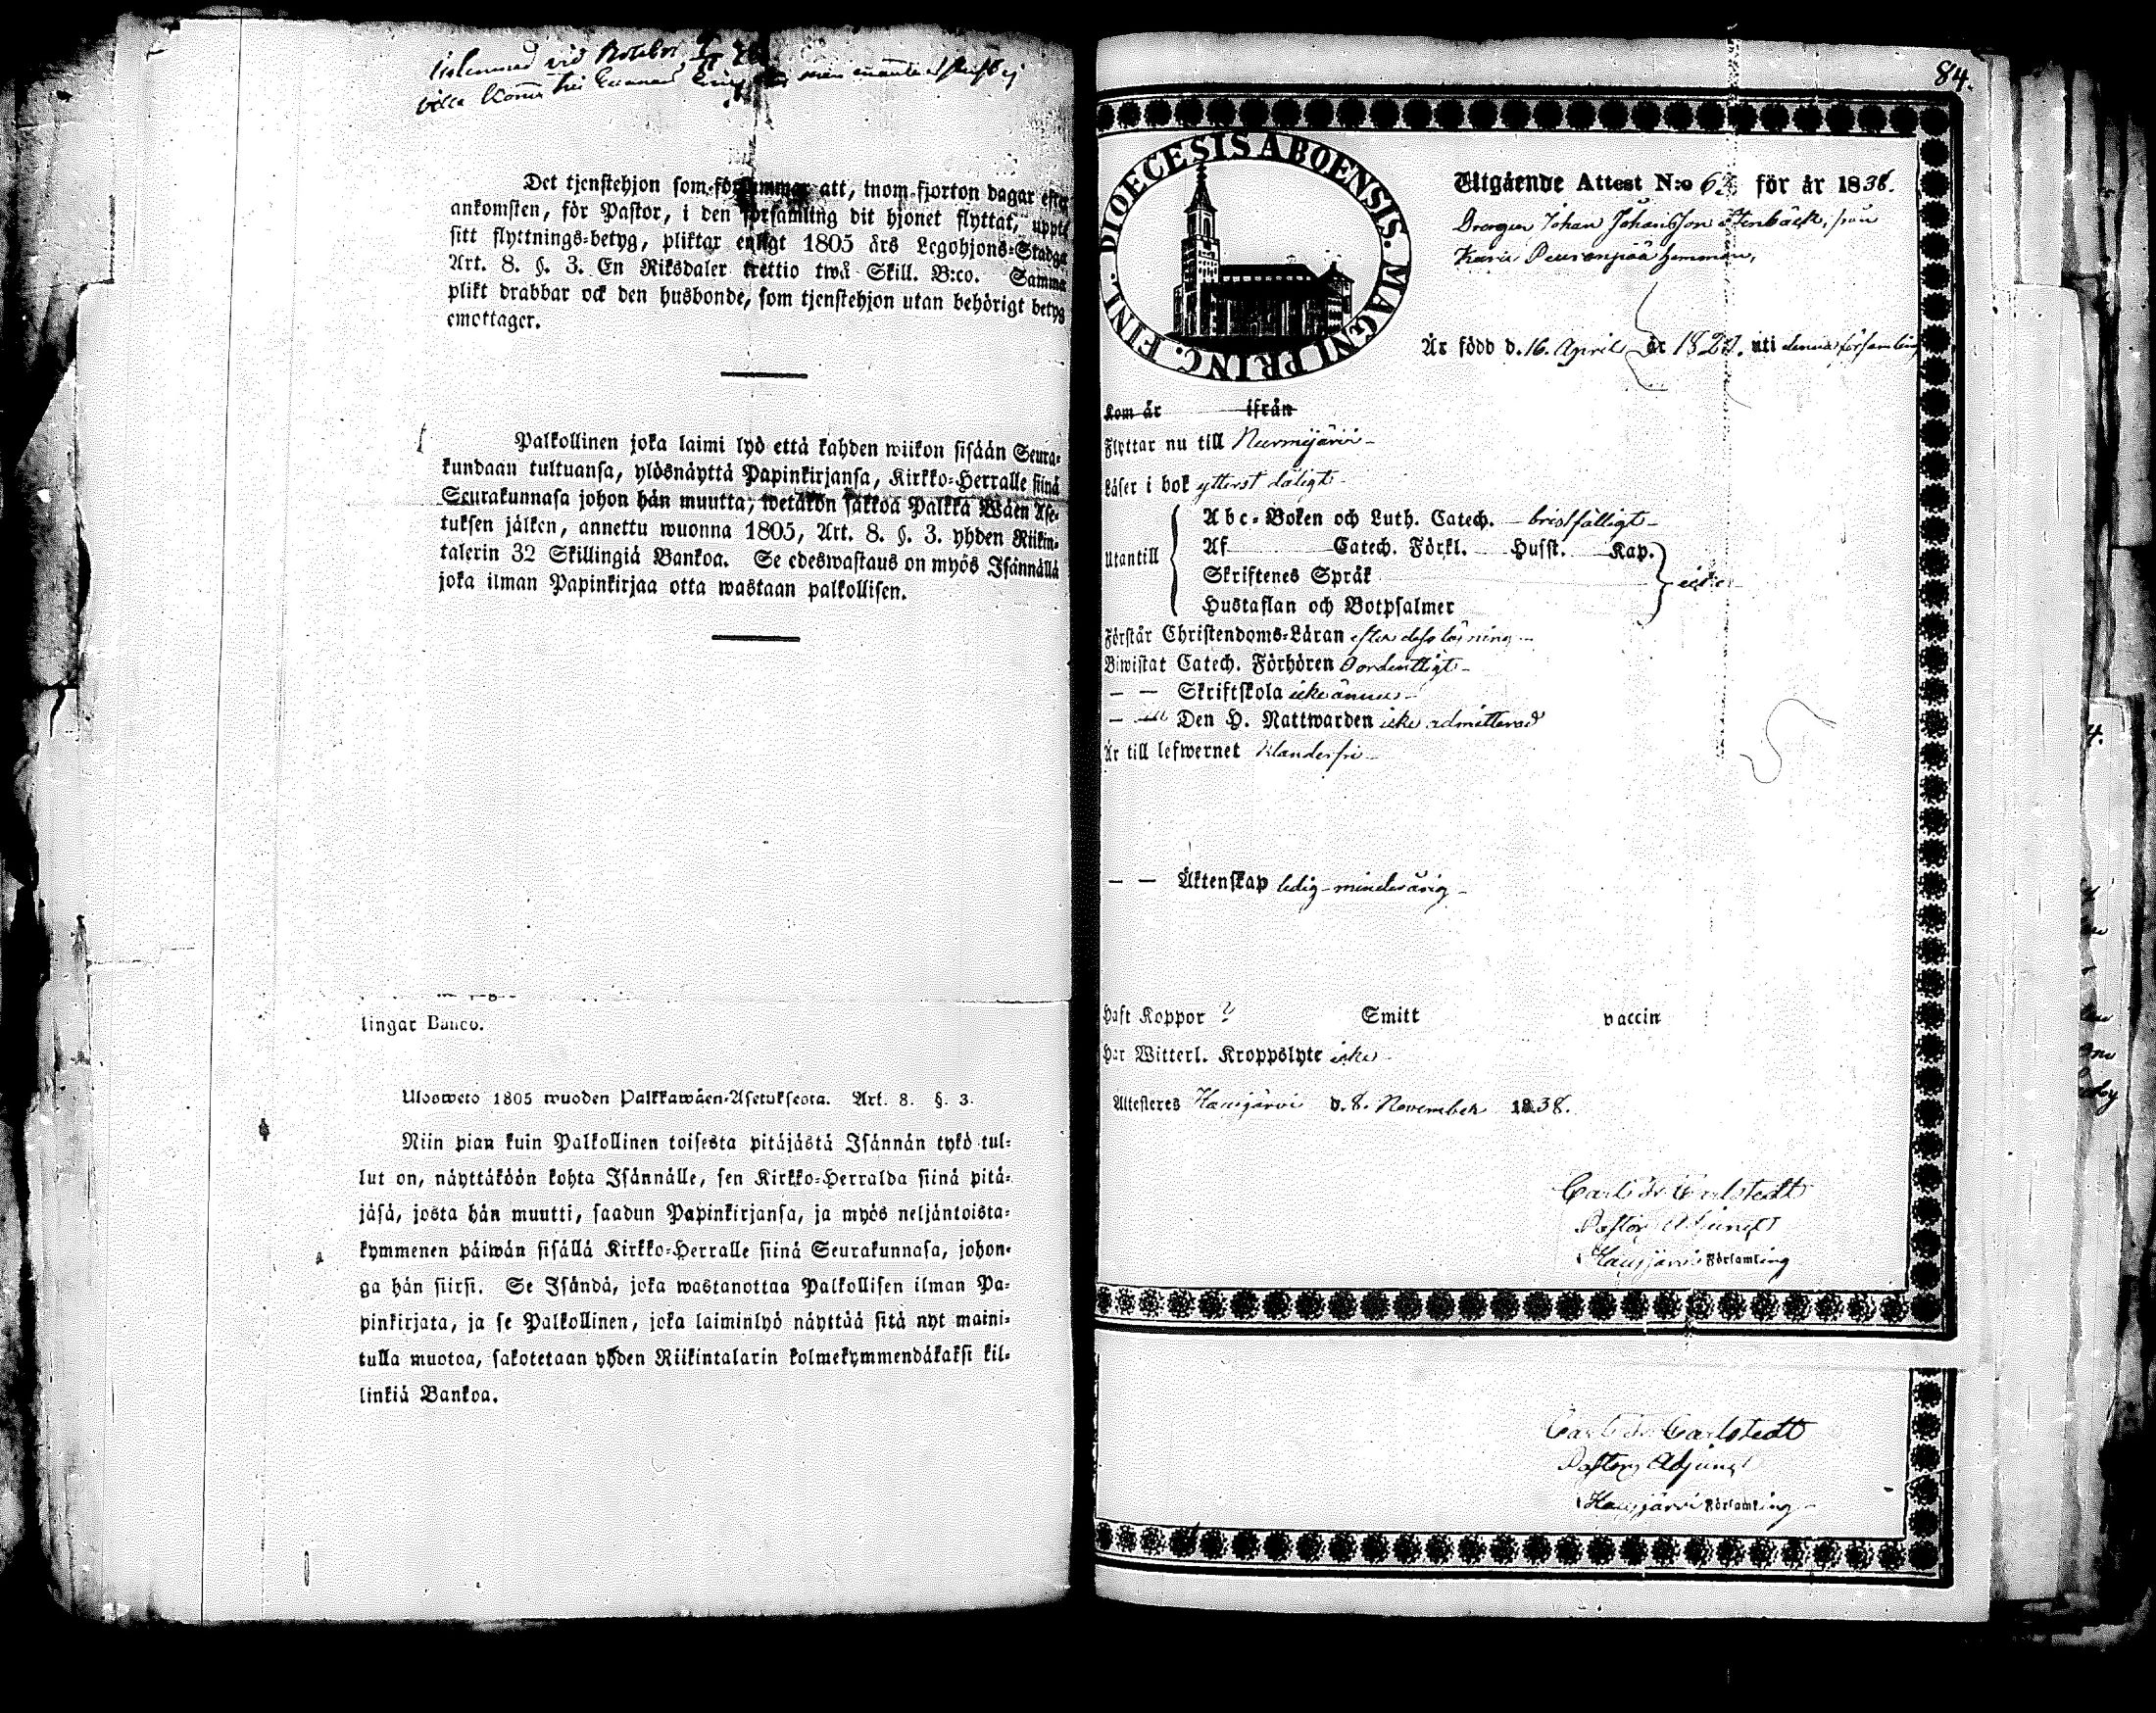 Det tjenstehjon som försummar att, inom fjorton dagar efter
ankomsten, för Pastor, i den församling dit hjonet flyttat, uppte
sitt flyttnings-betyg, pliktar enligt 1805 års Legohjons-Stadga
Art. 8. §. 3. En Riksdaler trettio twå Skill. B:co. Samma
plikt drabbar ock den husbonde, som tjenstehjon utan behörigt betyg
emottager.
Palkollinen joka laimi lyö että kahden wiikon sisään Seura-
kundaan tultuansa, ylösnäyttä Papinkirjansa, Kirkko-Herralle siinä
Seurakunnasa johon hän muutta, wetäkön sakkoa Palkka Wäen Ase-
tuksen jälken, annettu wuonna 1805, Art. 8. §. 3. yhden Riikin-
talerin 32 Skillingiä Bankoa. Se edeswastaus on myös Isännällä
joka ilman Papinkirjaa otta wastaan palkollisen.
lingar Banco.
Ulosweto 1805 wuoden Palkkawäen-Asetuksesta. Art. 8. §. 3.
Niin pian kuin Palkollinen toisesta pitäjästä Isännän tykö tul-
lut on, näyttäköön kohta Isännälle, sen Kirkko-Herralda siinä pitä-
jäsä, josta hän muutti, saadun Papinkirjansa, ja myös neljäntoista-
kymmenen päiwän sisällä Kirkko-Herralle siinä Seurakunnasa, johon-
ga hän siirsi. Se Isändä, joka wastanottaa Palkollisen ilman Pa-
pinkirjata, ja se Palkollinen, joka laiminlyö näyttää sitä nyt maini-
tulla muotoa, sakotetaan yhden Riikintalarin kolmekymmendäkaksi kil-
linkiä Bankoa.
84.
DIOECESIS ABOENSIS. MAGNI PRINC. FINL.
Utgående Attest N:o för år 1838.
Drengen Johan Johansson Stenbäck, från
Karia Peuranpää hemman,
Är född d. 16. April år 182 uti denna församling
Kom år ifrån
Flyttar nu till Nurmijärvi
Läser i bok ytterst dåligt
Utantill
Abc-Boken och Luth. Catech. bristfälligt
Af Catech. Förkl. Husst. Kap.
Skriftenes Språk icke
Hustaflan och Botpsalmer
Förstår Christendoms-Läran efter dess läsning
Biwistat Catech. Förhören Oordentligt
— — Skriftskola icke ännu
— till Den H. Nattwarden icke admitterad
Är till lefwernet klanderfri
— — Äktenskap ledig - minderårig
Haft Koppor ? Smitt vaccin
Har Witterl. Kroppslyte icke
Attesteres Hausjärvi d. 8. November 1838.
Carlstedt
Pastors Adjunct
i Hausjärvi Församling
Carlstedt
Pastors Adjunct
i Hausjärvi Församling